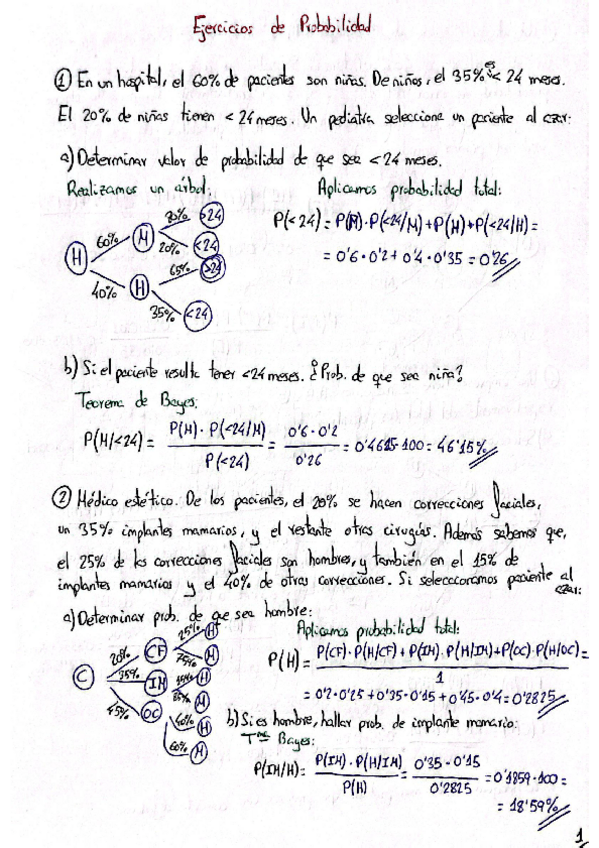 Ejercicios de Probabilidad
① En un hospital, el 60% de pacientes son niñas. De niños, el 35% es < 24 meses.
El 20% de niñas tienen < 24 meses. Un pediatra selecciona un paciente al azar:
a) Determinar valor de probabilidad de que sea < 24 meses.
Realizamos un árbol:
Aplicamos probabilidad total:
H
60%
M
20%
<24
40%
H
65%
>24
35%
<24
P(<24) = P(M)·P(<24/M)+P(H)+P(<24/H) =
= 0'6·0'2 + 0'4·0'35 = 0'26
b) Si el paciente resulta tener <24 meses. ¿Prob. de que sea niña?
Teorema de Bayes:
P(M/<24) = P(M)·P(<24/M) / P(<24) = 0'6·0'2 / 0'26 = 0'4615·100 = 46'15%
② Médico estético. De los pacientes, el 20% se hacen correcciones faciales,
un 35% implantes mamarios, y el restante otras cirugías. Además sabemos que,
el 25% de las correcciones faciales son hombres, y también en el 15% de
implantes mamarios y el 40% de otras correcciones. Si seleccoramos paciente al
azar:
a) Determinar prob. de que sea hombre:
Aplicamos probabilidad total:
C
20%
CF
25%
H
75%
M
35%
IM
15%
H
85%
M
45%
OC
40%
H
60%
M
P(H) = P(CF)·P(H/CF)+P(IM)·P(H/IM)+P(OC)·P(H/OC) / 1 =
= 0'2·0'25 + 0'35·0'15 + 0'45·0'4 = 0'2825
b) Si es hombre, hallar prob. de implante mamario:
Tma Bayes:
P(IM/H) = P(IM)·P(H/IM) / P(H) = 0'35·0'15 / 0'2825 = 0'1859·100 =
= 18'59%
1